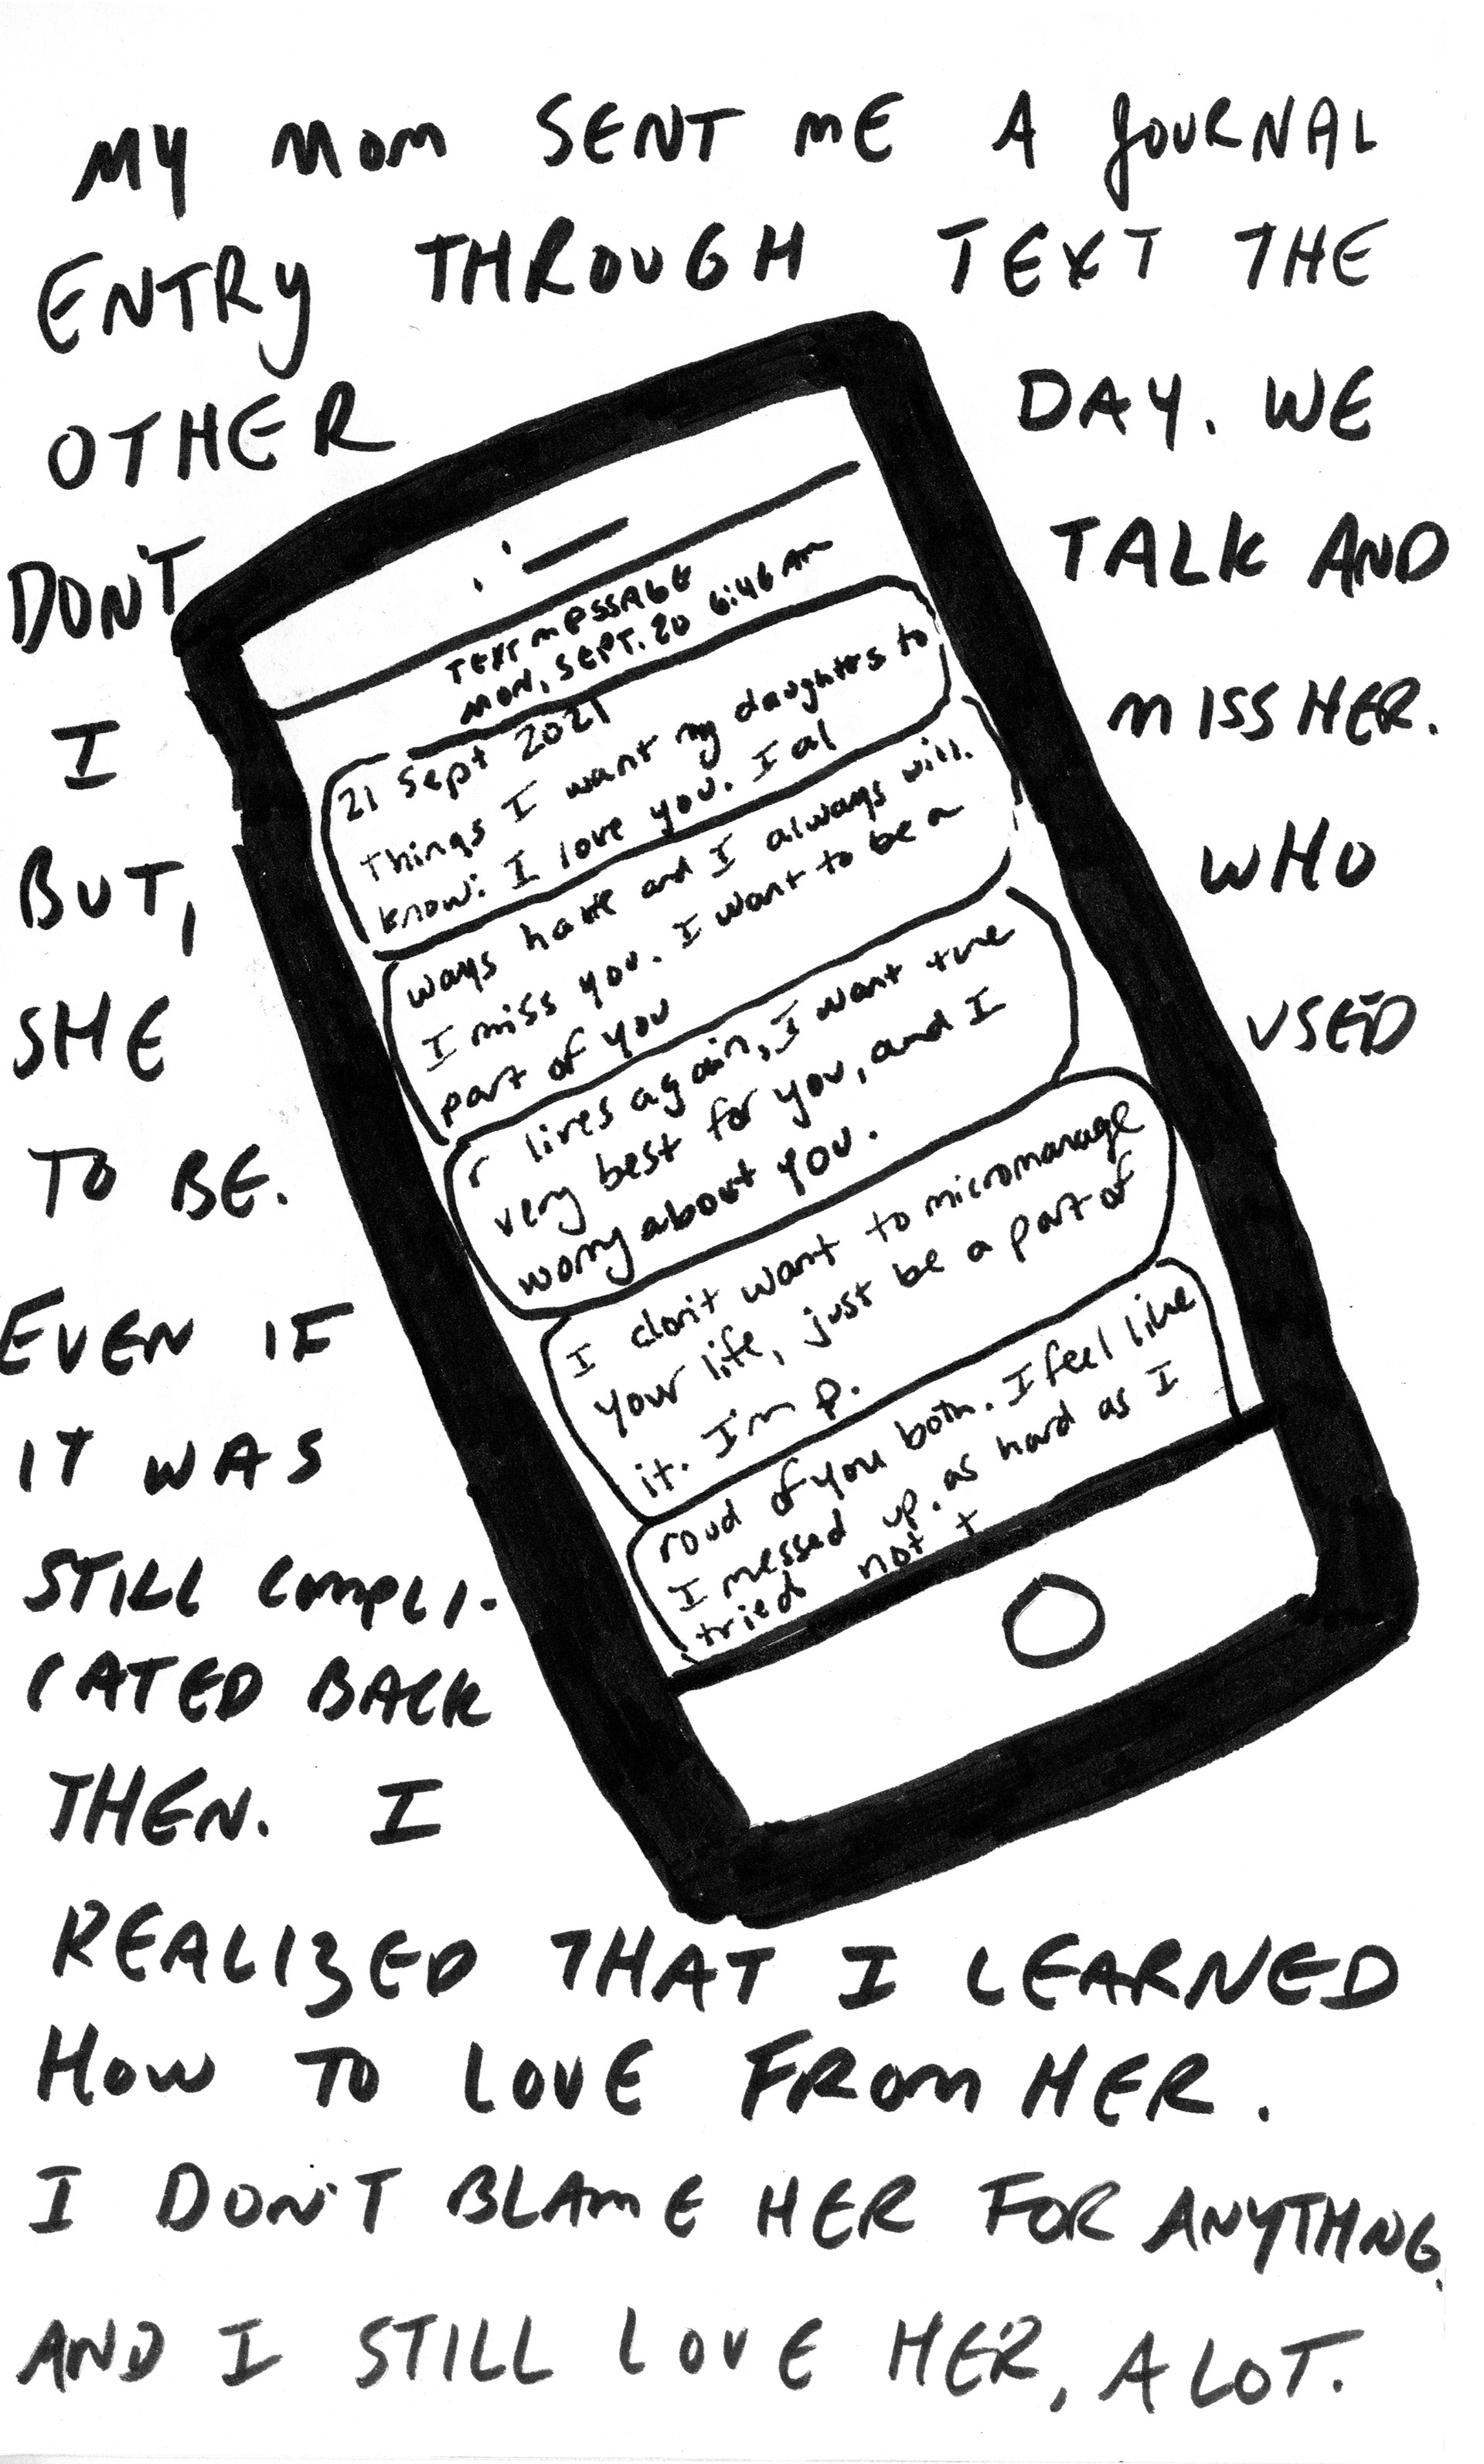 MY MOM SENT ME A JOURNAL
ENTRY THROUGH TEXT THE
OTHER DAY. WE
DON'T TALK AND
I MISS HER.
BUT, WHO
SHE USED
TO BE.
EVEN IF
IT WAS
STILL COMPLI-
CATED BACK
THEN. I
REALIZED THAT I LEARNED
HOW TO LOVE FROM HER.
I DON'T BLAME HER FOR ANYTHNG.
AND I STILL LOVE HER, A LOT.
TEXT MESSAGE
MON, SEPT. 20 6:46 AM
21 Sept 2021
Things I want my daughters to
know: I love you. I al
ways have and I always will.
I miss you. I want to be a
part of you
r lives again, I want the
very best for you, and I
worry about you.
I don't want to micromanage
your life, just be a part of
it. I'm p.
roud of you both. I feel like
I messed up. as hard as I
tried not t